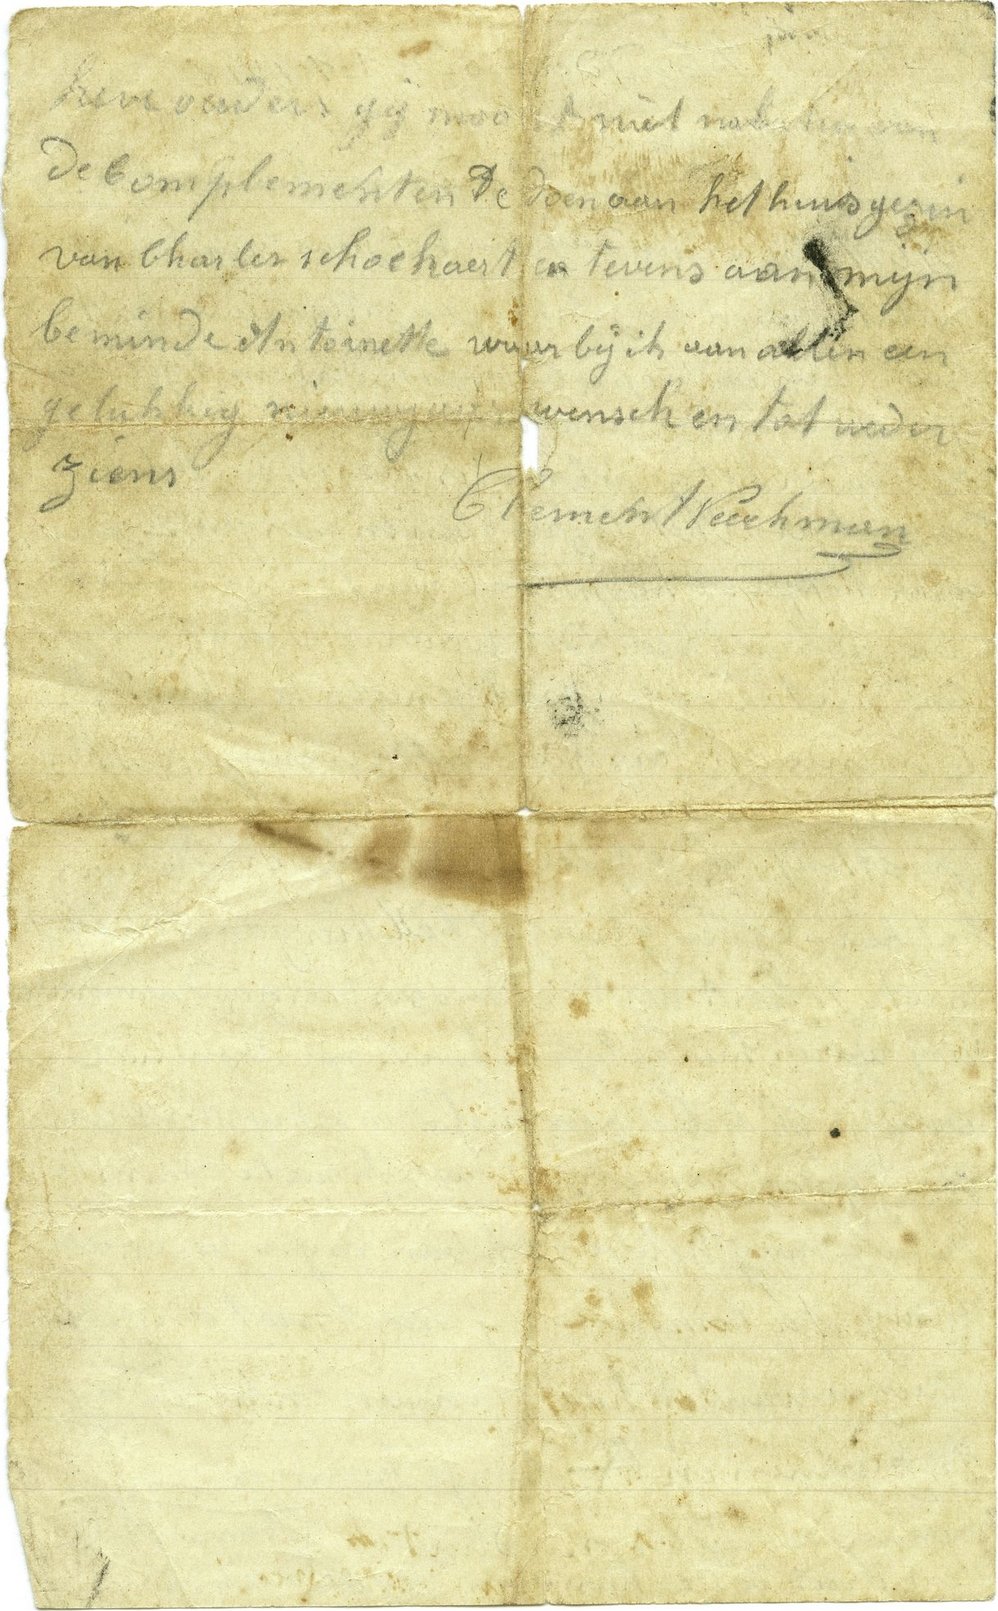 lieve ouders gij moogt niet nalaten van
de Complementen te doen aan het huisgezin
van Charles schockaert en tevens aan mijn
beminde Antoinette waar bij ik aan allen een
gelukkig nieuwjaar wensch en tot weder
ziens
Clement